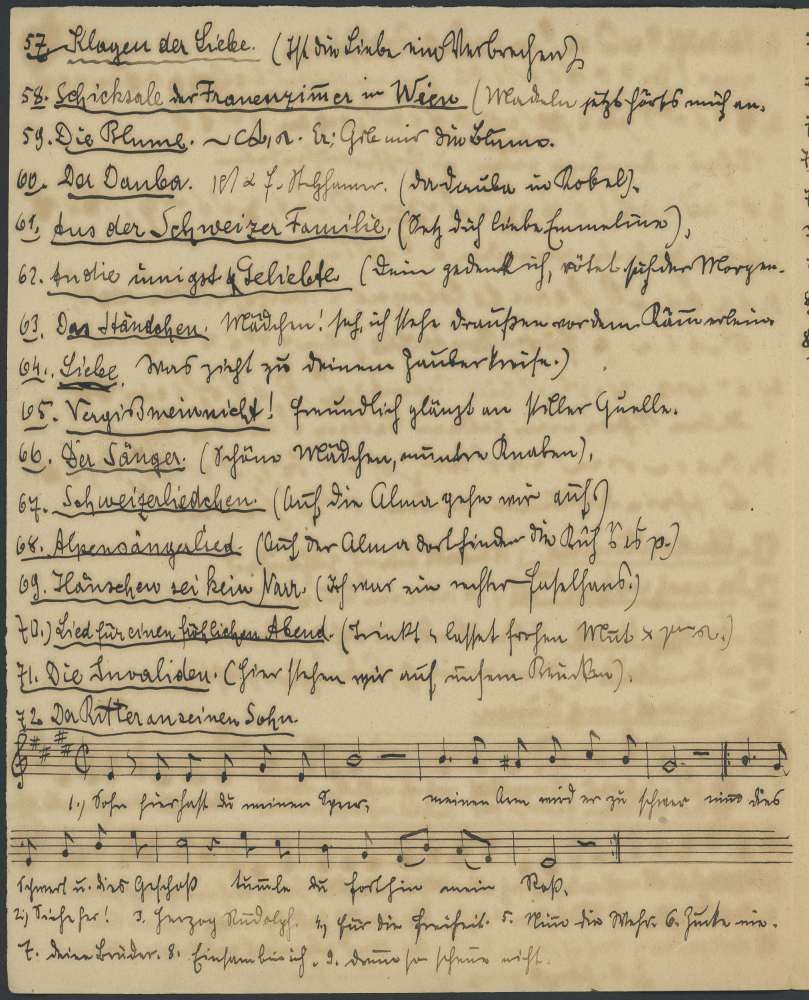 57. Klagen der Liebe. (Ist die Liebe ein Verbrechen?)
58. Schicksale der Frauenzim̄er in Wien (Madeln jetzt hörts mich an.
59. Die Blume. Er: Gib mir die Blume.
60. Der Dauba. Stelzhamer. (Da Dauba in Kobel).
61. Aus der Schweizer Familie. (Setz dich liebe Emmeline).
62. An die innigst Geliebte (Dein gedenk ich, rötet sich der Morgen.
63. Das Ständchen. Mädchen! seh, ich stehe draußen vor dem
64. Liebe. Was zieht zu deinem Zauberkreise.)
65. Vergißmeinnicht! Freundlich glänzt an stiller Quelle.
66. Der Sänger. (Schöne Mädchen, muntre Knaben).
67. Schweizerliedchen. (Auf die Alma gehn wir aufs)
68. Alpensängerlied. (Auf der Alma dort finden die Küh
69. Hänschen sei kein Narr. (Ich war ein rechter Faselhans.)
70.) Lied für einen fröhlichen Abend. (Trinkt u lasset frohen Mut
71. Die Invaliden. (Hier stehen wir auf unsern Krucken).
72 Der Ritter an seinen Sohn.
1.) Sohn hier hast du meinen Speer, meinem Arm wird er zu schwer nim̄ dies
Schwert u. dies Geschoß tum̄le du forthin mein Roß.
2.) Siehe her! 3. Herzog Rudolph. 4.) Für die Freiheit. 5. Nim̄ die Wehr. 6. Zucke nie.
7. deine Brüder. 8. Einsam bin ich. 9. drum̄ so scheue nicht.